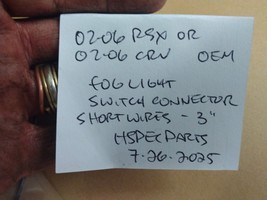 02-06 RSX OR
02-06 CRV OEM
FOGLIGHT
SWITCH CONNECTOR
SHORT WIRES - 3"
HSPEC PARTS
7-26-2025